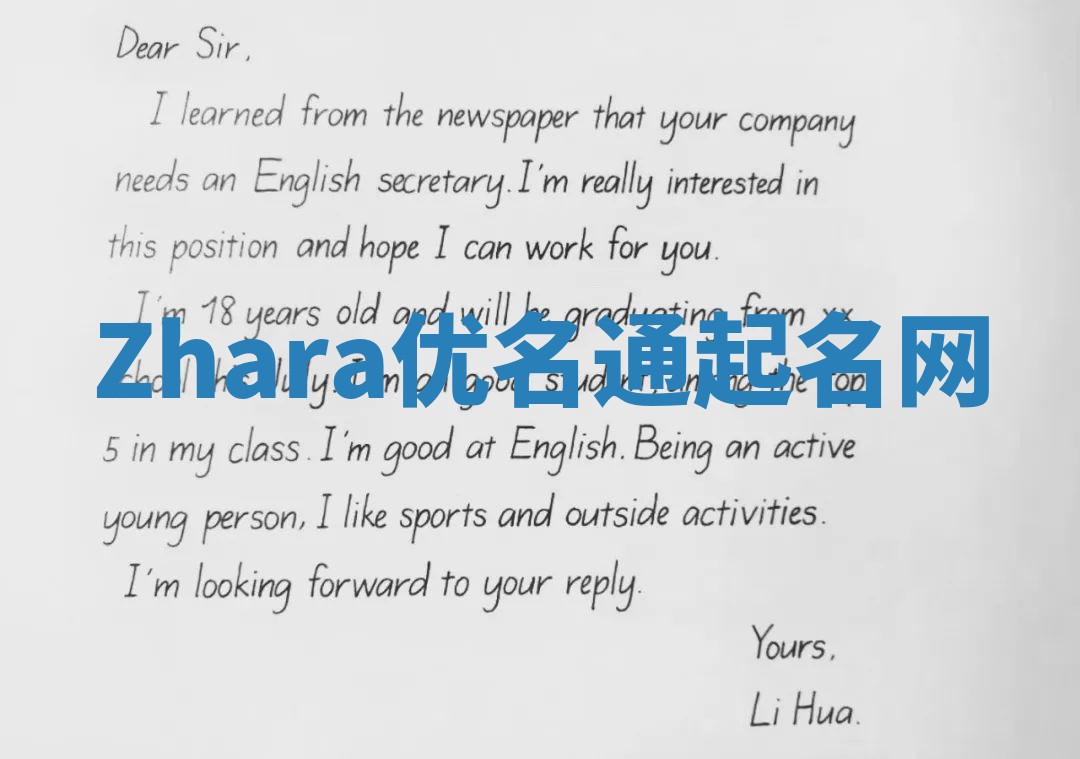 Dear Sir,
I learned from the newspaper that your company
needs an English secretary. I'm really interested in
this position and hope I can work for you.
I'm 18 years old and will be graduating from xx
Zhara优名通起名网
school this July. I'm a good student, among the top
5 in my class. I'm good at English. Being an active
young person, I like sports and outside activities.
I'm looking forward to your reply.
Yours,
Li Hua.